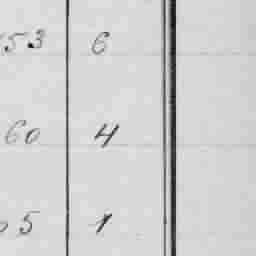 53 6
60 4
05 1